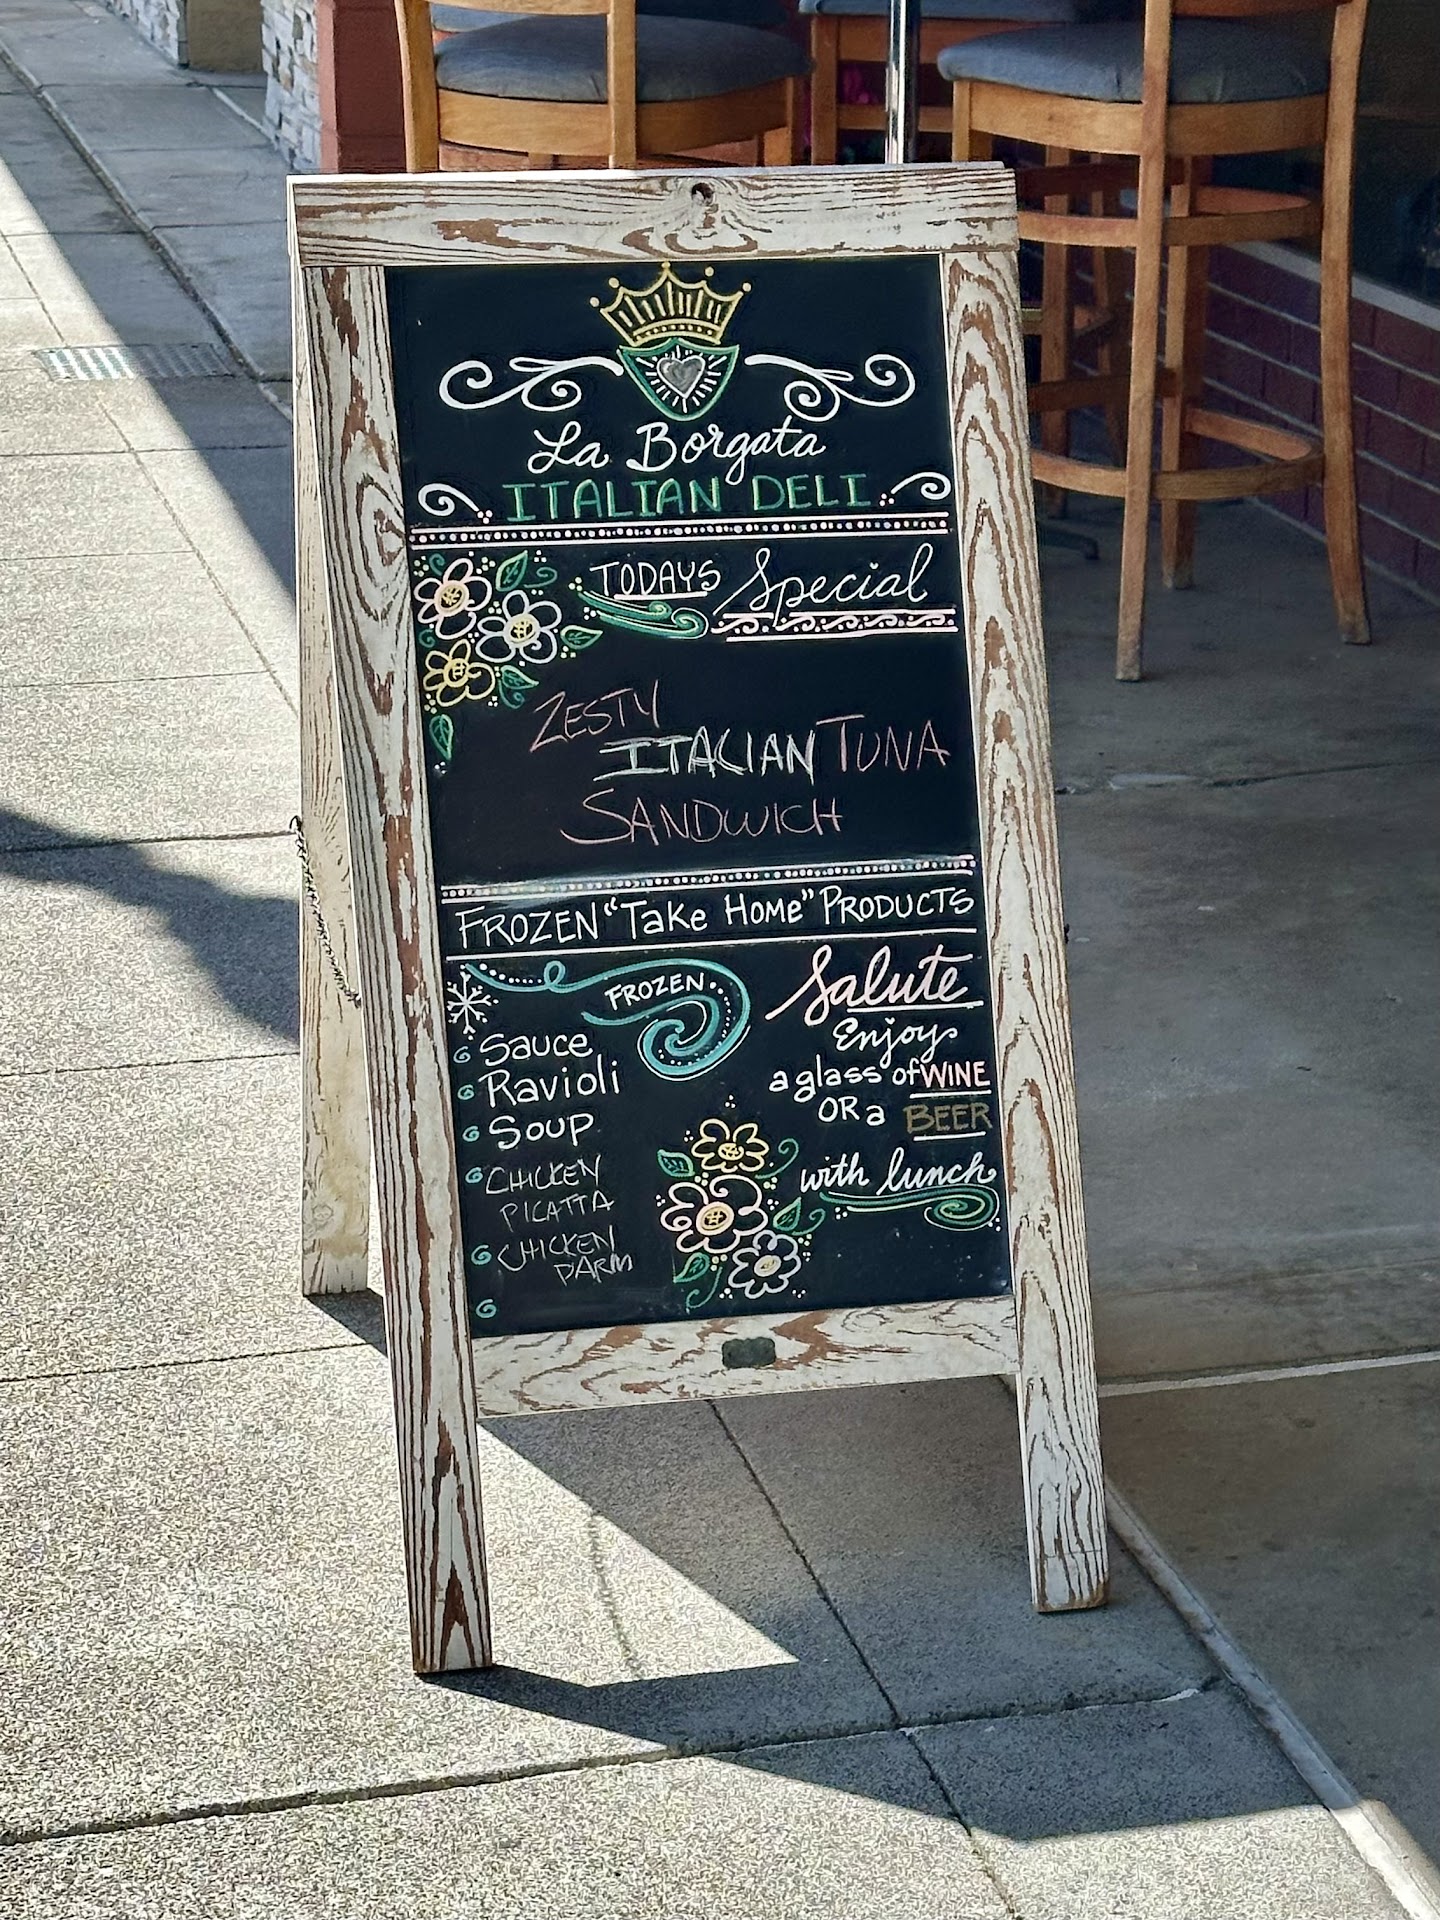 La Borgata
ITALIAN DELI
TODAYS Special
ZESTY
ITALIAN TUNA
SANDWICH
FROZEN "Take Home" PRODUCTS
FROZEN
Sauce
Ravioli
Soup
CHICKEN
PICATTA
CHICKEN
PARM
Salute
Enjoy
a glass of WINE
OR a BEER
with lunch